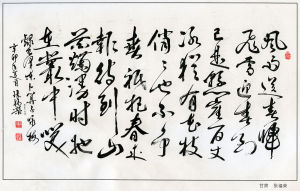 风雨送春归
飞雪迎春到
已是悬崖百丈
冰犹有花枝
俏俏也不争
春祇把春来
报待到山
花烂漫时她
在丛中笑
辛卯
甘肃